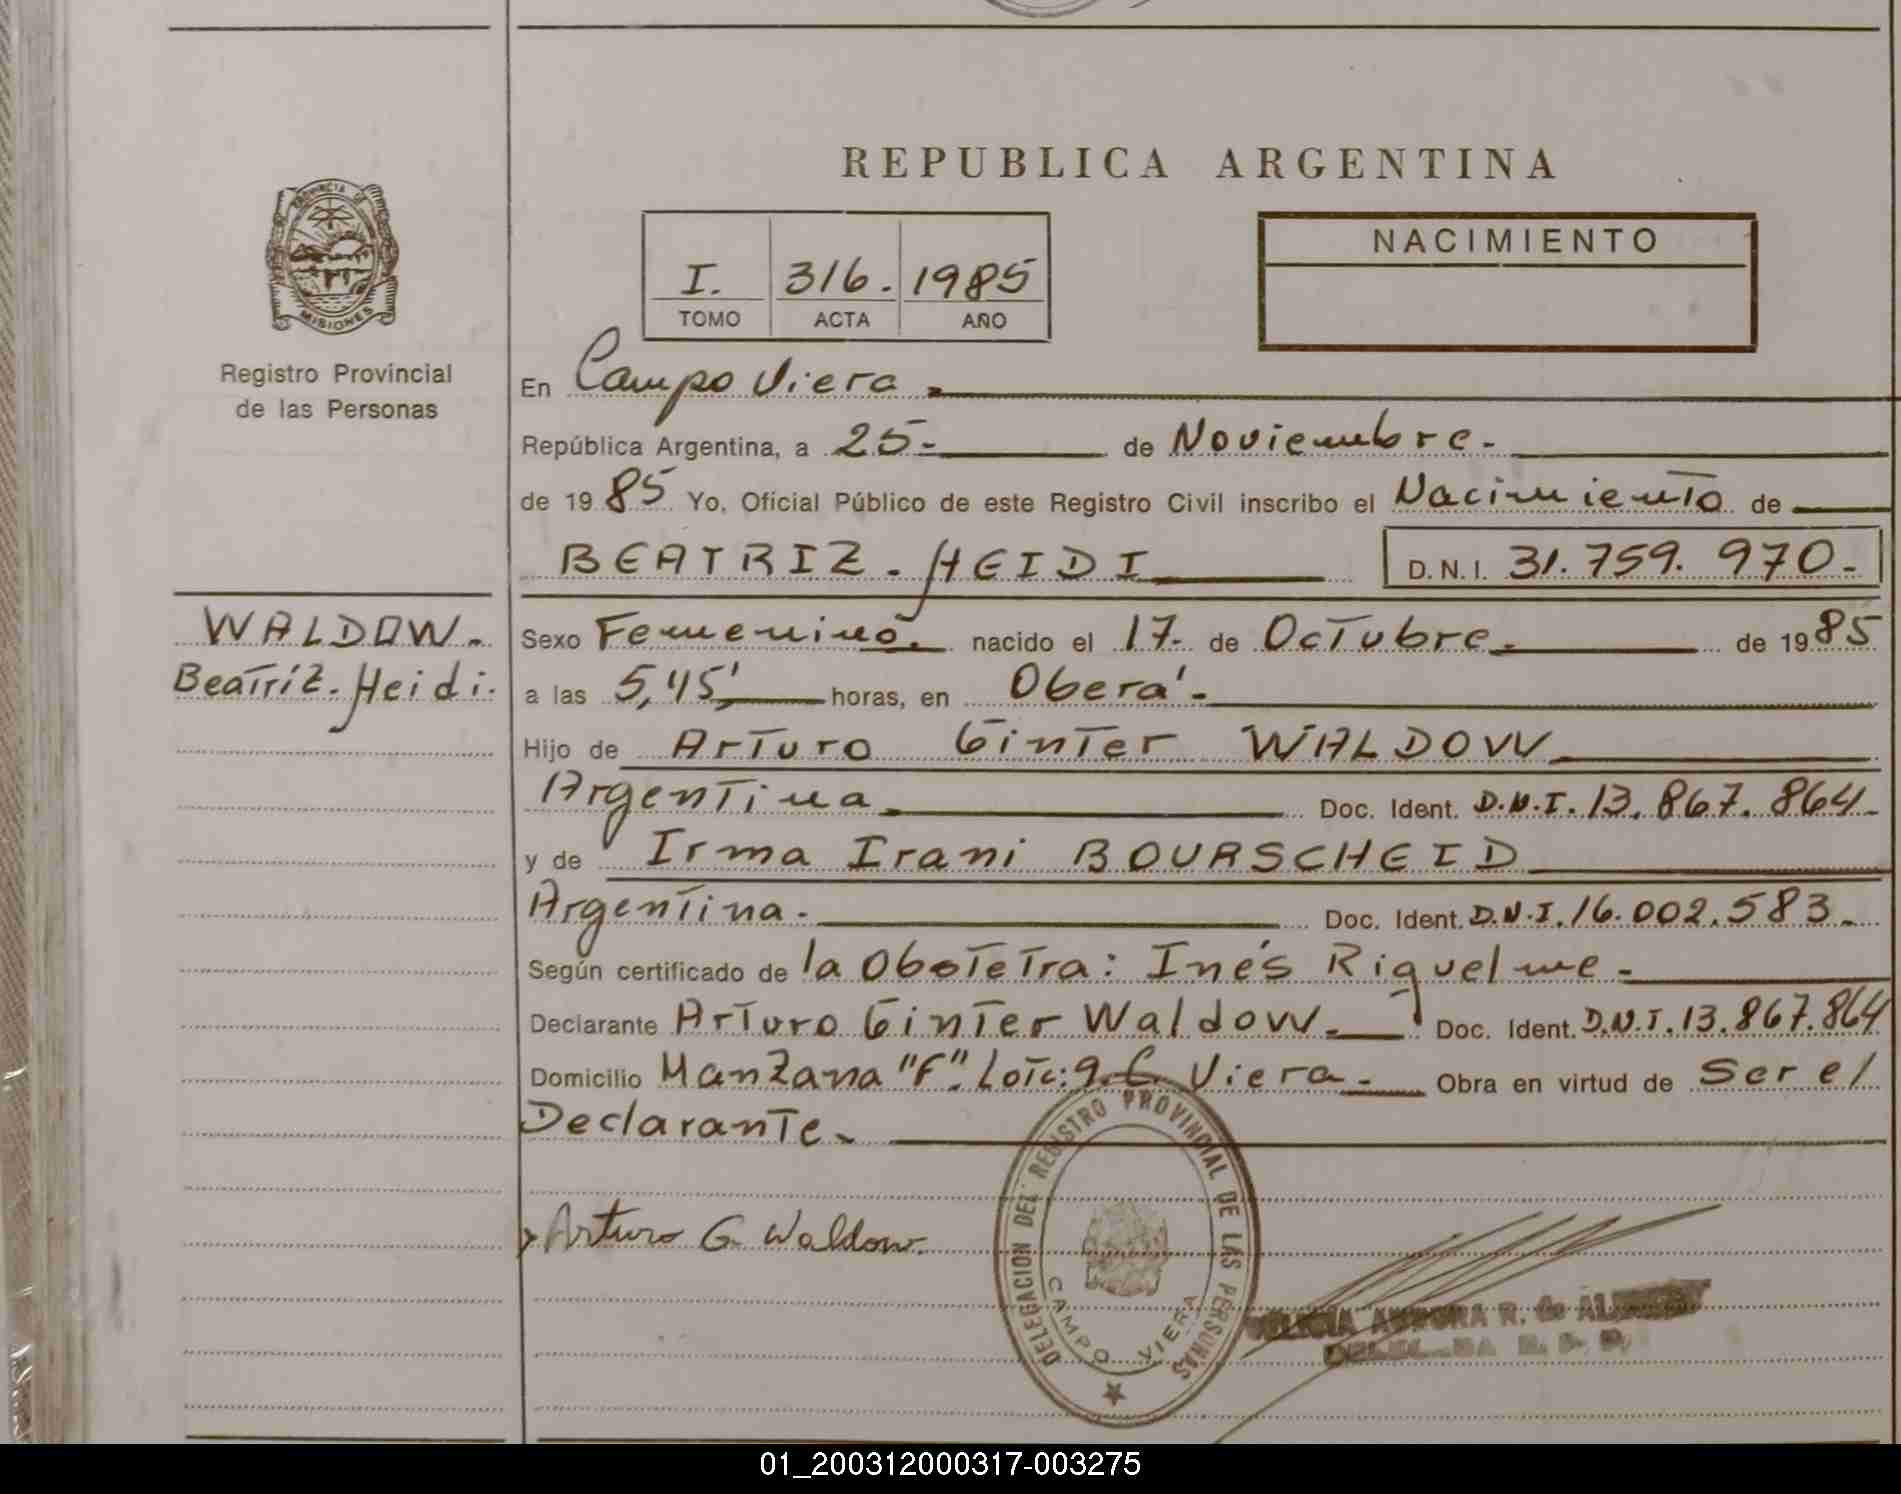 REPUBLICA ARGENTINA
PROVINCIA DE
MISIONES
Registro Provincial
de las Personas
I. 316. 1985
TOMO ACTA AÑO
NACIMIENTO
En Campo Viera.
República Argentina, a 25- de Noviembre.-
de 1985 Yo, Oficial Público de este Registro Civil inscribo el Nacimiento de
BEATRIZ. HEIDI D.N.I. 31.759.970.-
WALDOW.-
Beatriz. Heidi.
Sexo Femenino. nacido el 17- de Octubre.- de 1985
a las 5,45' horas, en Oberá.-
Hijo de Arturo Ginter WALDOW
Argentina. Doc. Ident. D.N.I. 13.867.864.-
y de Irma Irani BOURSCHEID
Argentina.- Doc. Ident. D.N.I. 16.002.583.-
Según certificado de la Obstetra: Inés Riquelme.-
Declarante Arturo Ginter Waldow.- Doc. Ident. D.N.I. 13.867.864
Domicilio Manzana "F". Lote: 9. C. Viera.- Obra en virtud de Ser el
Declarante.-
Arturo G. Waldow.
DELEGACION DEL REGISTRO PROVINCIAL DE LAS PERSONAS
CAMPO VIERA
AURORA R. de
01_200312000317-003275